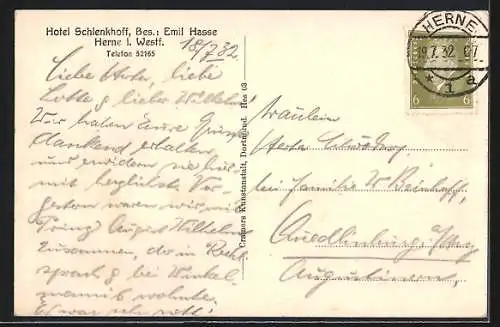 Hotel Schlenkhoff, Bes.: Emil Hasse
Herne i. Westf.
Telefon 52165
18/7 32
Liebe Herta, liebe
Lotte & lieber Wilhelm!
Wir haben Eure Grüsse
dankend erhalten
und erwidern sie hier-
mit herzlichst. Vor-
gestern waren wir mit
Prinz August Wilhelm
zusammen, der in Reckl
& bei Winkel-
mann's wohnte.
Es war sehr nett!
Cramers Kunstanstalt, Dortmund. Hes 03
HERNE
19.7.32. 07
* 1 a
6 6
Fräulein
Herta
bei Familie W.
Quedlinburg a/Harz